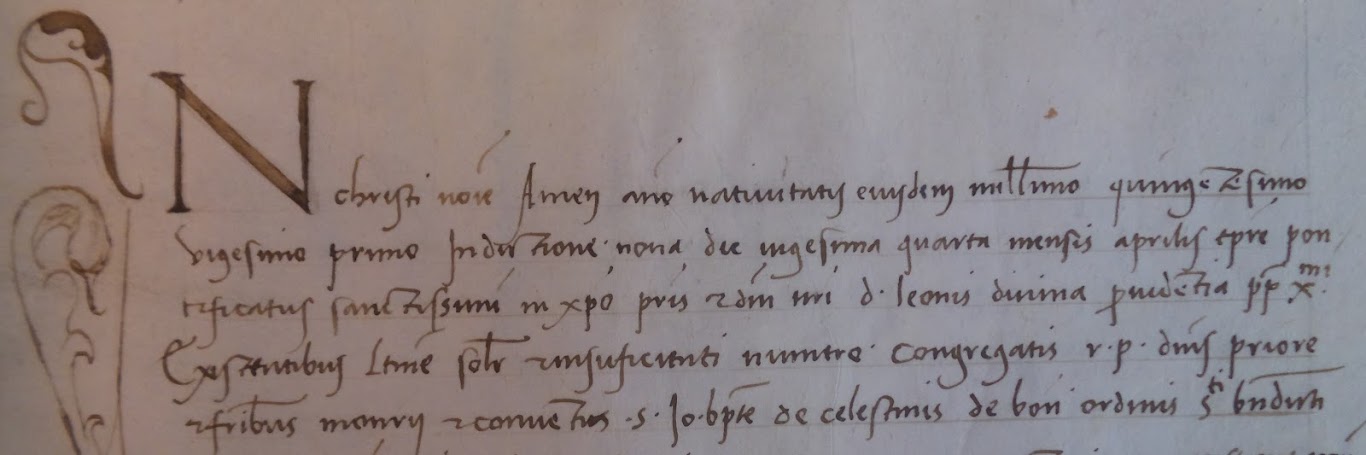 IN christi noie Amen ano nativitatis eiusdem millimo quingetesimo
vigesimo primo Indictione nona die vigesima quarta mensis aprilis tpre pon
tificatus sanctissimi in xpo pris et dni nri d. leonis divina providetia pp x.mi
Existentibus ltime solr et in suficienti numero congregatis r. p. dnis priore
et fribus monrii et conventus .s. Jo. bpte de celestinis de bon ordinis sti bndicti